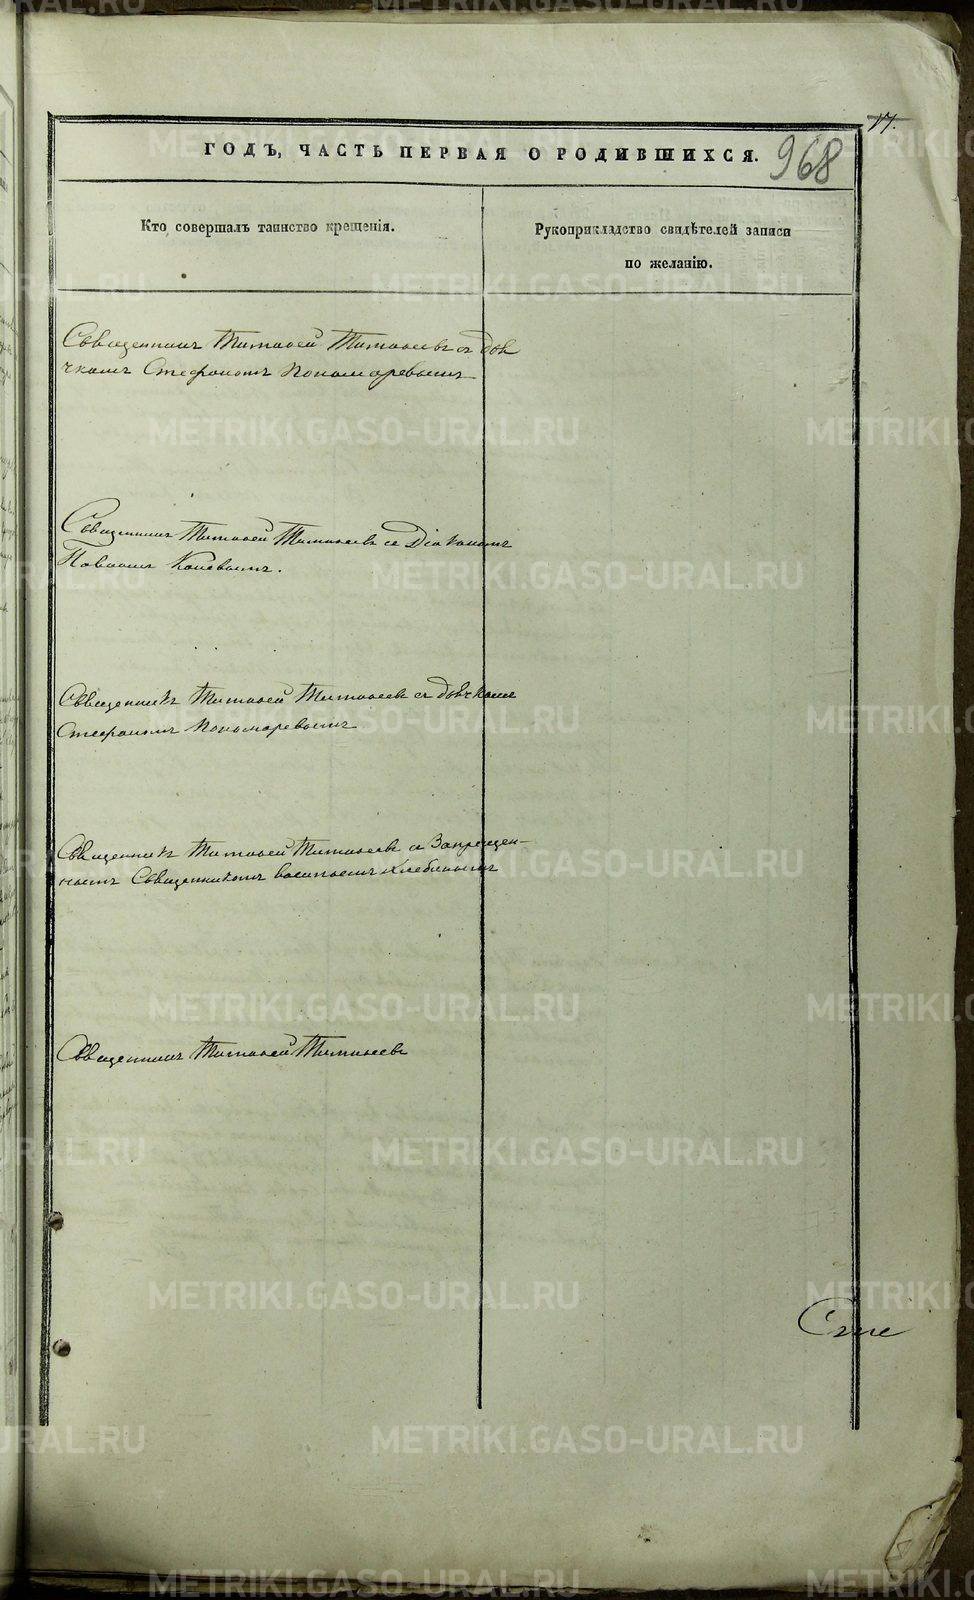 17.
968
ГОДЪ, ЧАСТЬ ПЕРВАЯ О РОДИВШИХСЯ.
Кто совершалъ таинство крещенія.
Рукоприкладство свидѣтелей записи
по желанію.
Священникъ Тимофей Тимофеевъ съ дья
чкомъ Стефаномъ Пономаревымъ
Священникъ Тимофей Тимофеевъ съ Діакономъ
Павломъ Коневымъ.
Священникъ Тимофей Тимофеевъ съ дьячкомъ
Стефаномъ Пономаревымъ
Священникъ Тимофей Тимофеевъ съ Запрещен-
нымъ Священникомъ Васильемъ
Священникъ Тимофей Тимофеевъ
METRIKI.GASO-URAL.RU